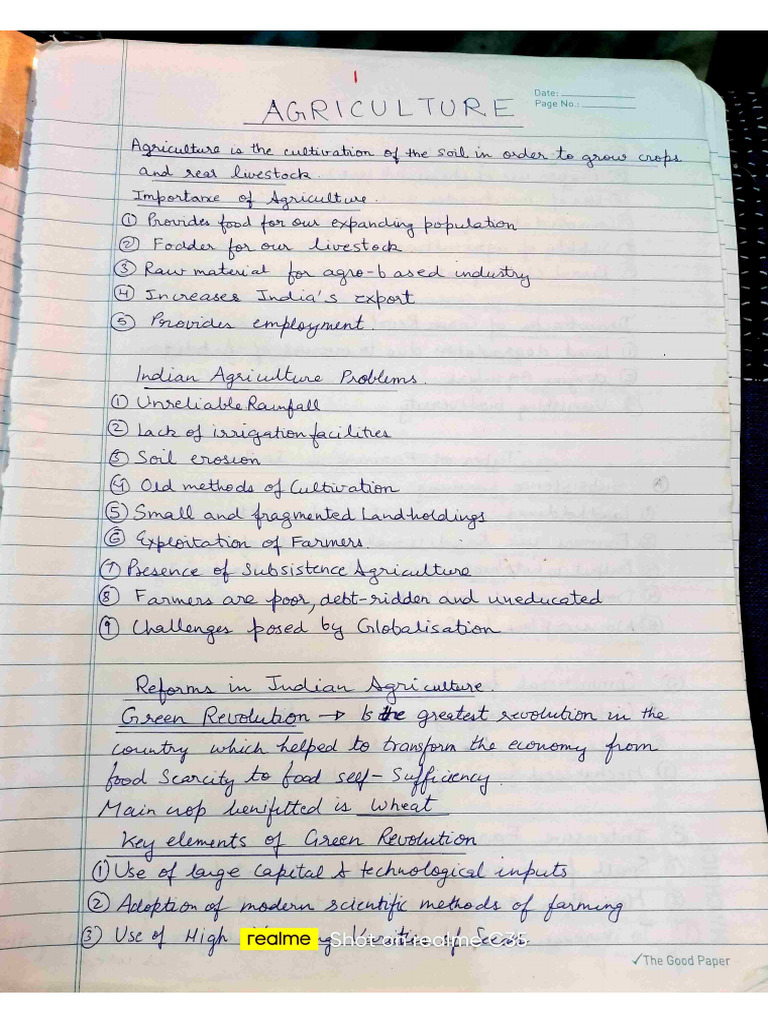 1
Date:
Page No.:
AGRICULTURE
Agriculture is the cultivation of the soil in order to grow crops
and rear livestock.
Importance of Agriculture.
① Provides food for our expanding population
② Fodder for our livestock.
③ Raw material for agro-based industry
④ Increases India's export
⑤ Provides employment.
Indian Agriculture Problems.
① Unreliable Rainfall
② Lack of irrigation facilities
③ Soil erosion
④ Old methods of Cultivation
⑤ Small and fragmented Landholdings
⑥ Exploitation of Farmers.
⑦ Presence of Subsistence Agriculture
⑧ Farmers are poor, debt-ridden and uneducated
⑨ Challenges posed by Globalisation
Reforms in Indian Agriculture.
Green Revolution → Is the greatest revolution in the
country which helped to transform the economy from
food Scarcity to food self-Sufficiency.
Main crop benifitted is Wheat
Key elements of Green Revolution
① Use of large Capital & technological inputs
② Adoption of modern scientific methods of farming
③ Use of High of Seeds.
realme Shot on realme C35
✓The Good Paper